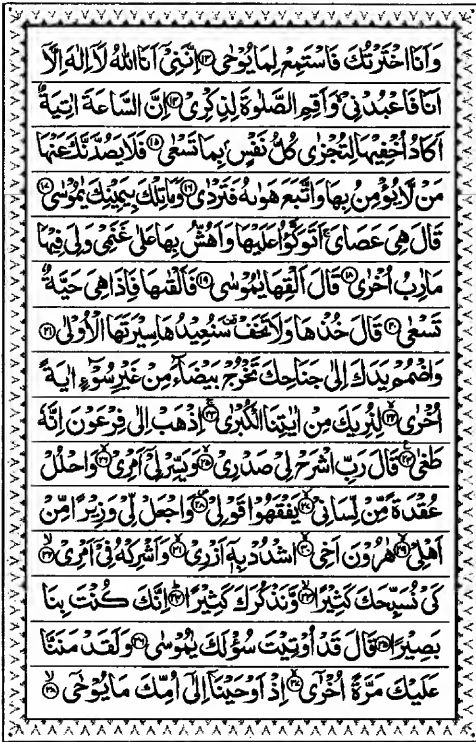 وَاَنَا اخْتَرْتُكَ فَاسْتَمِعْ لِمَا يُوْحٰى ۝۱۳ اِنَّنِيْۤ اَنَا اللّٰهُ لَاۤ اِلٰهَ اِلَّاۤ
اَنَا فَاعْبُدْنِيْ ۙ وَاَقِمِ الصَّلٰوةَ لِذِكْرِيْ ۝۱۴ اِنَّ السَّاعَةَ اٰتِيَةٌ
اَكَادُ اُخْفِيْهَا لِتُجْزٰى كُلُّ نَفْسٍۭ بِمَا تَسْعٰى ۝۱۵ فَلَا يَصُدَّنَّكَ عَنْهَا
مَنْ لَّا يُؤْمِنُ بِهَا وَاتَّبَعَ هَوٰىهُ فَتَرْدٰى ۝۱۶ وَمَا تِلْكَ بِيَمِيْنِكَ يٰمُوْسٰى ۝۱۷
قَالَ هِيَ عَصَايَ ۚ اَتَوَكَّؤُا عَلَيْهَا وَاَهُشُّ بِهَا عَلٰى غَنَمِيْ وَلِيَ فِيْهَا
مَاٰرِبُ اُخْرٰى ۝۱۸ قَالَ اَلْقِهَا يٰمُوْسٰى ۝۱۹ فَاَلْقٰىهَا فَاِذَا هِيَ حَيَّةٌ
تَسْعٰى ۝۲۰ قَالَ خُذْهَا وَلَا تَخَفْ ۥ سَنُعِيْدُهَا سِيْرَتَهَا الْاُوْلٰى ۝۲۱
وَاضْمُمْ يَدَكَ اِلٰى جَنَاحِكَ تَخْرُجْ بَيْضَآءَ مِنْ غَيْرِ سُوْٓءٍ اٰيَةً
اُخْرٰى ۝۲۲ لِنُرِيَكَ مِنْ اٰيٰتِنَا الْكُبْرٰى ۝۲۳ اِذْهَبْ اِلٰى فِرْعَوْنَ اِنَّهٗ
طَغٰى ۝۲۴ قَالَ رَبِّ اشْرَحْ لِيْ صَدْرِيْ ۝۲۵ وَيَسِّرْ لِيْۤ اَمْرِيْ ۝۲۶ وَاحْلُلْ
عُقْدَةً مِّنْ لِّسَانِيْ ۝۲۷ يَفْقَهُوْا قَوْلِيْ ۝۲۸ وَاجْعَلْ لِّيْ وَزِيْرًا مِّنْ
اَهْلِيْ ۝۲۹ هٰرُوْنَ اَخِي ۝۳۰ اشْدُدْ بِهٖۤ اَزْرِيْ ۝۳۱ وَاَشْرِكْهُ فِيْۤ اَمْرِيْ ۝۳۲
كَيْ نُسَبِّحَكَ كَثِيْرًا ۝۳۳ وَّنَذْكُرَكَ كَثِيْرًا ۝۳۴ اِنَّكَ كُنْتَ بِنَا
بَصِيْرًا ۝۳۵ قَالَ قَدْ اُوْتِيْتَ سُؤْلَكَ يٰمُوْسٰى ۝۳۶ وَلَقَدْ مَنَنَّا
عَلَيْكَ مَرَّةً اُخْرٰۤى ۝۳۷ اِذْ اَوْحَيْنَاۤ اِلٰۤى اُمِّكَ مَا يُوْحٰۤى ۝۳۸